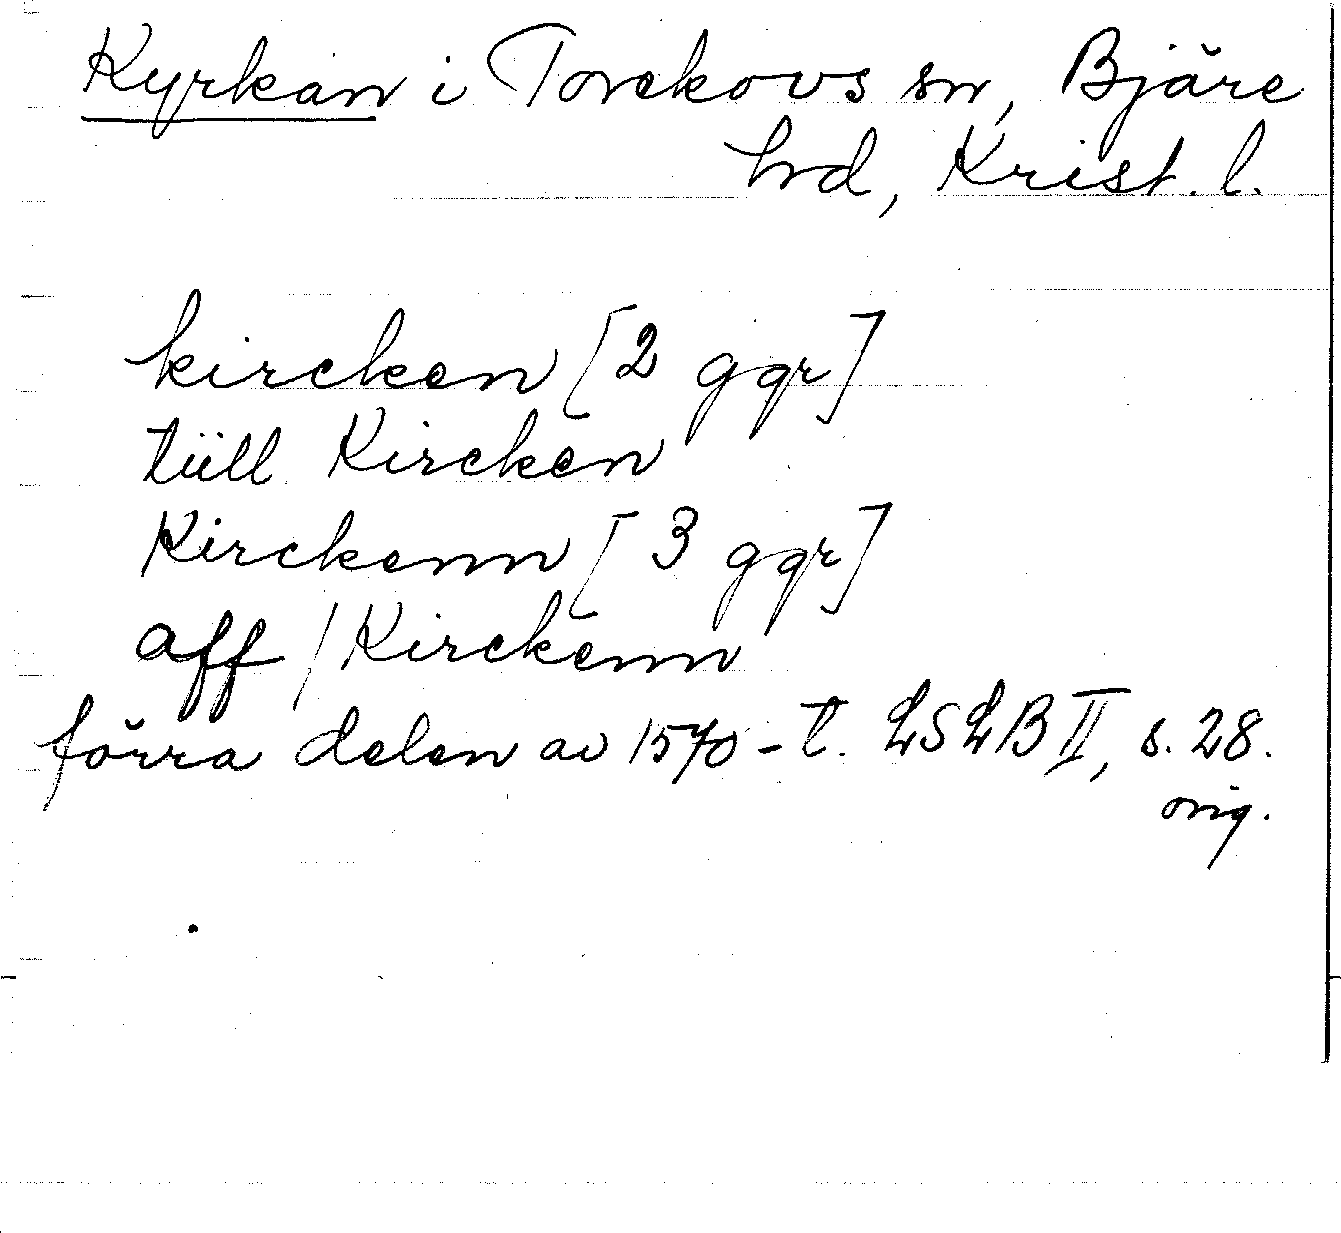 Kyrkan i Torekovs sn, Bjäre
hrd, Krist. l.
kircken [2 ggr]
tiill Kircken
Kirckenn [3 ggr]
aff / Kirckenn
förra delen av 1570-t. LSLB II, s. 28.
orig.